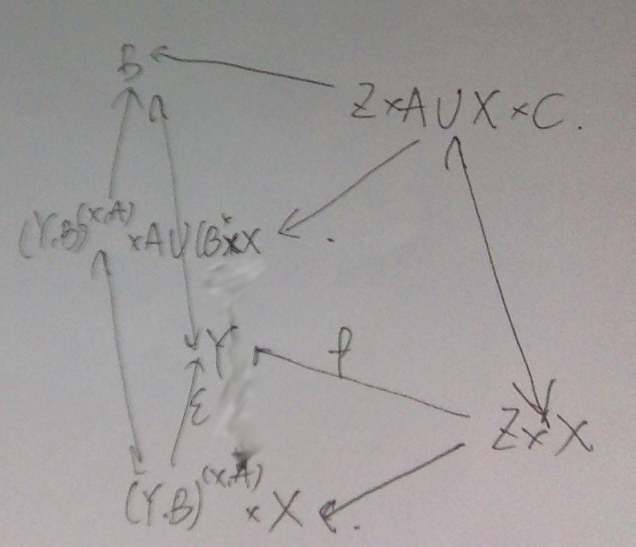 B
Z×A∪X×C.
(Y,B)^(X,A) ×A∪(B^X×X
Y
f
ε
Z×X
(Y,B)^(X,A) ×X